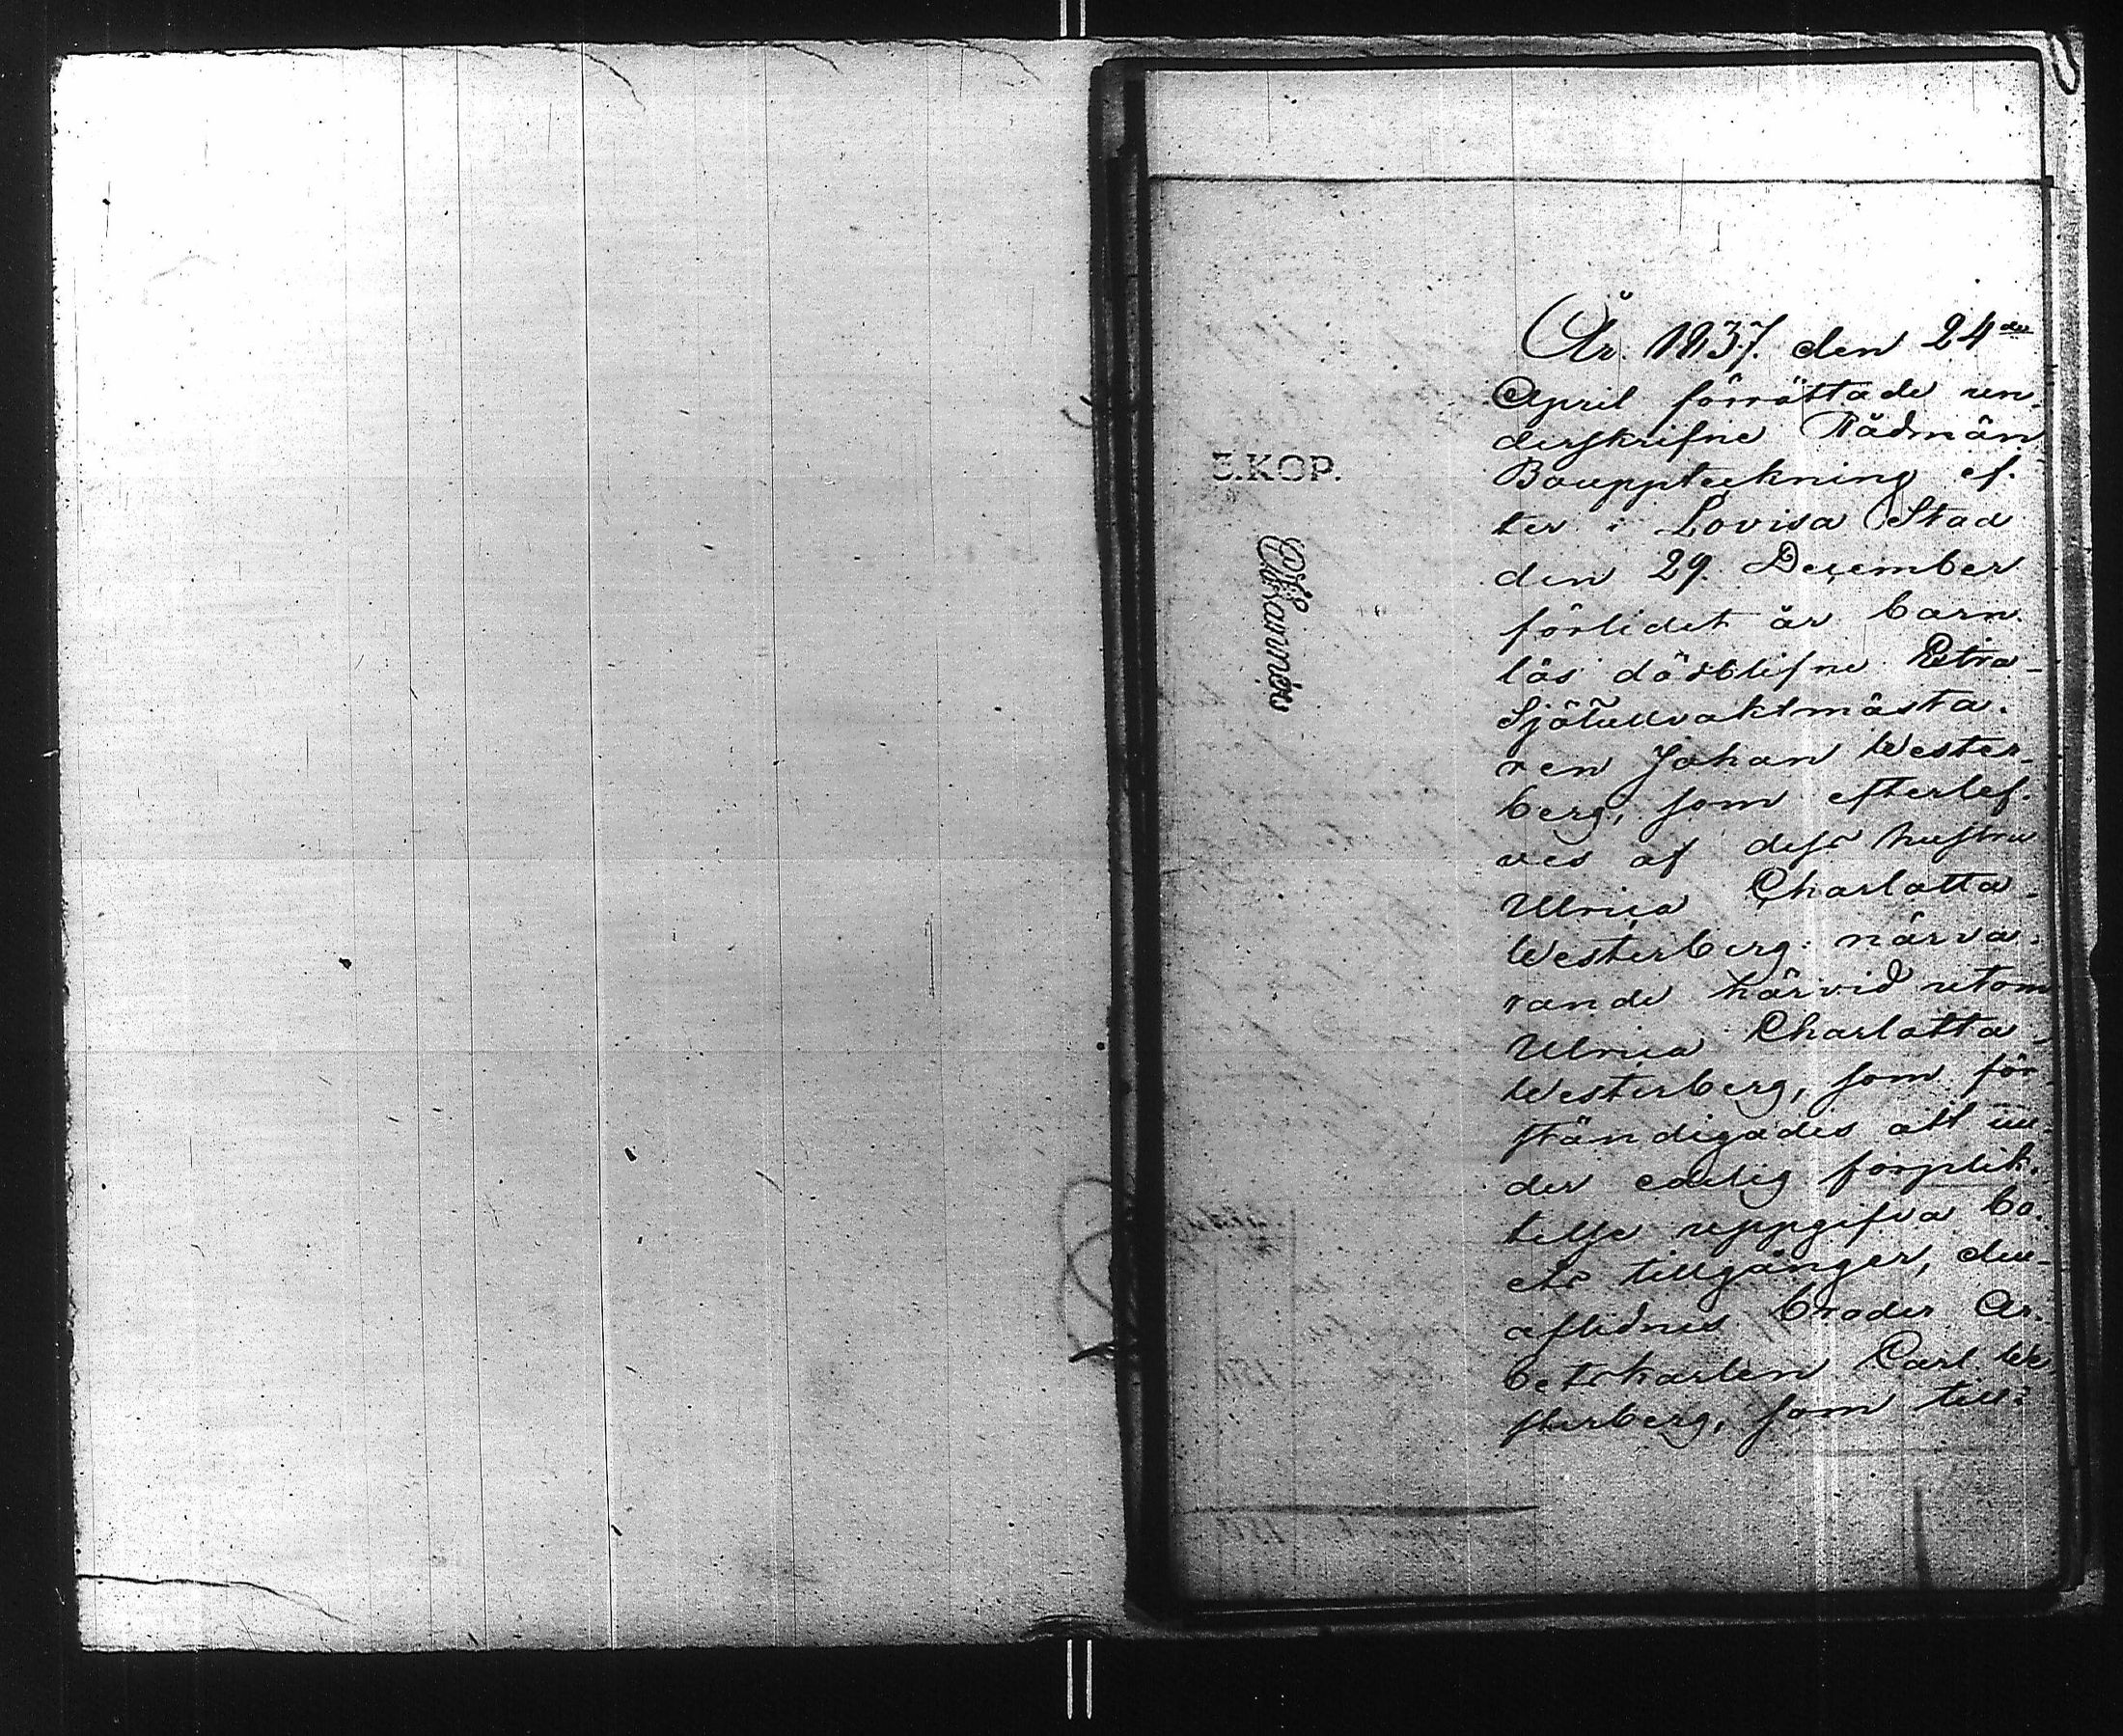 År 1837. den 24de
April förrättade un-
derskrifne Rådmän
Bouppteckning ef-
ter i Lovisa Stad
den 29. December
förlidet år barn-
lös dödblefne Extra-
Sjötullvaktmästa-
ren Johan Wester-
berg, som efterlef-
ves af dess hustru
Ulrica Charlotta
Westerberg: närva-
rande härvid utom
Ulrica Charlotta
Westerberg, som för-
ständigades att un-
der edelig förplik-
telse uppgifva bo-
ets tillgångar, den
aflidnes broder Ar-
betskarlen Carl We
sterberg, som till-
E.KOP.